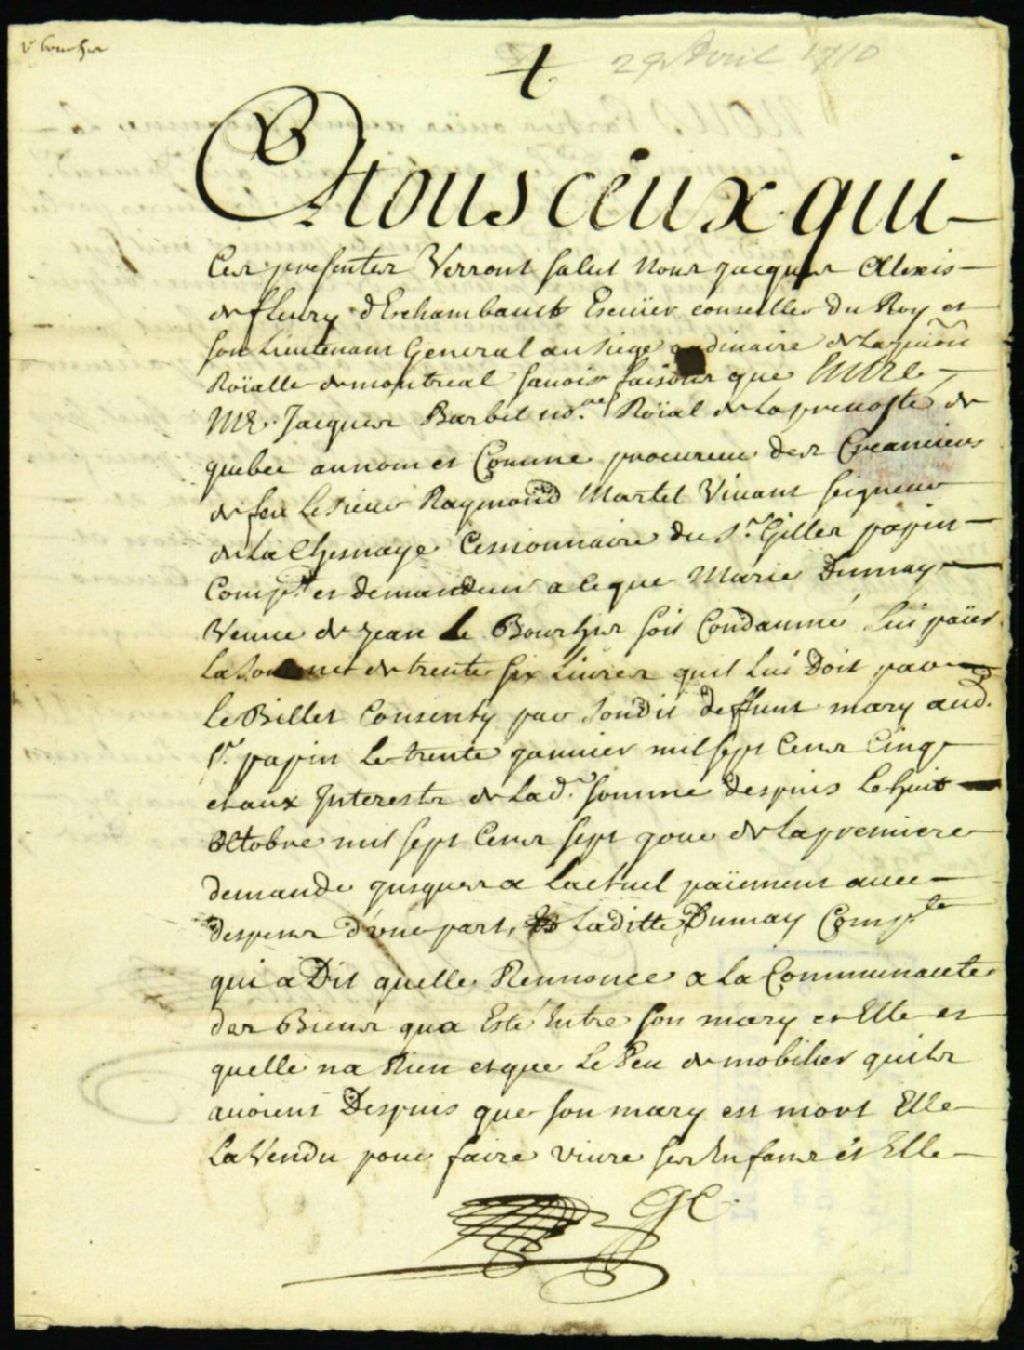 29 Avril 1710
A tous ceux qui
ces presentes Verront salut Nous Jacques Alexis
de fleury d'Eschambault Escuier conseiller du Roy et
son Lieutenant General au siege ordinaire de La
Roïalle de montreal sauoir faisons que Entre
Mr. Jacques Barbel no.re Roïal de La preuosté de
quebec au nom et Comme procureur des Creanciers
de feu Le sieur Raymond Martel Viuant seigneur
de La Chesnaye Cessionnaire du Sr. Gilles papin
Comp.t et demandeur a ce que Marie Dumay
Veuue de Jean Le Bourhis soit Condamné Lui païer
La somme de trente six Liures quil Lui Doit par
Le Billet Consenty par sondit deffunt mary aud.
Sr. papin Le trente Januier mil sept Cens Cinq
et aux Interests de Lad.e somme despuis Le huit
Octobre mil sept Cens sept Jour de La premiere
demande Jusques a Lactuel païement auec
despens d'vne part, Et Laditte Dumay Comp.te
qui a Dit quelle Rennonce a La Communauté
des Biens qua Esté Entre son mary et Elle et
quelle na Rien et que Le Peu de mobilier quils
auoient Despuis que son mary est mort Elle
La Vendu pour faire viure ses Enfans et Elle